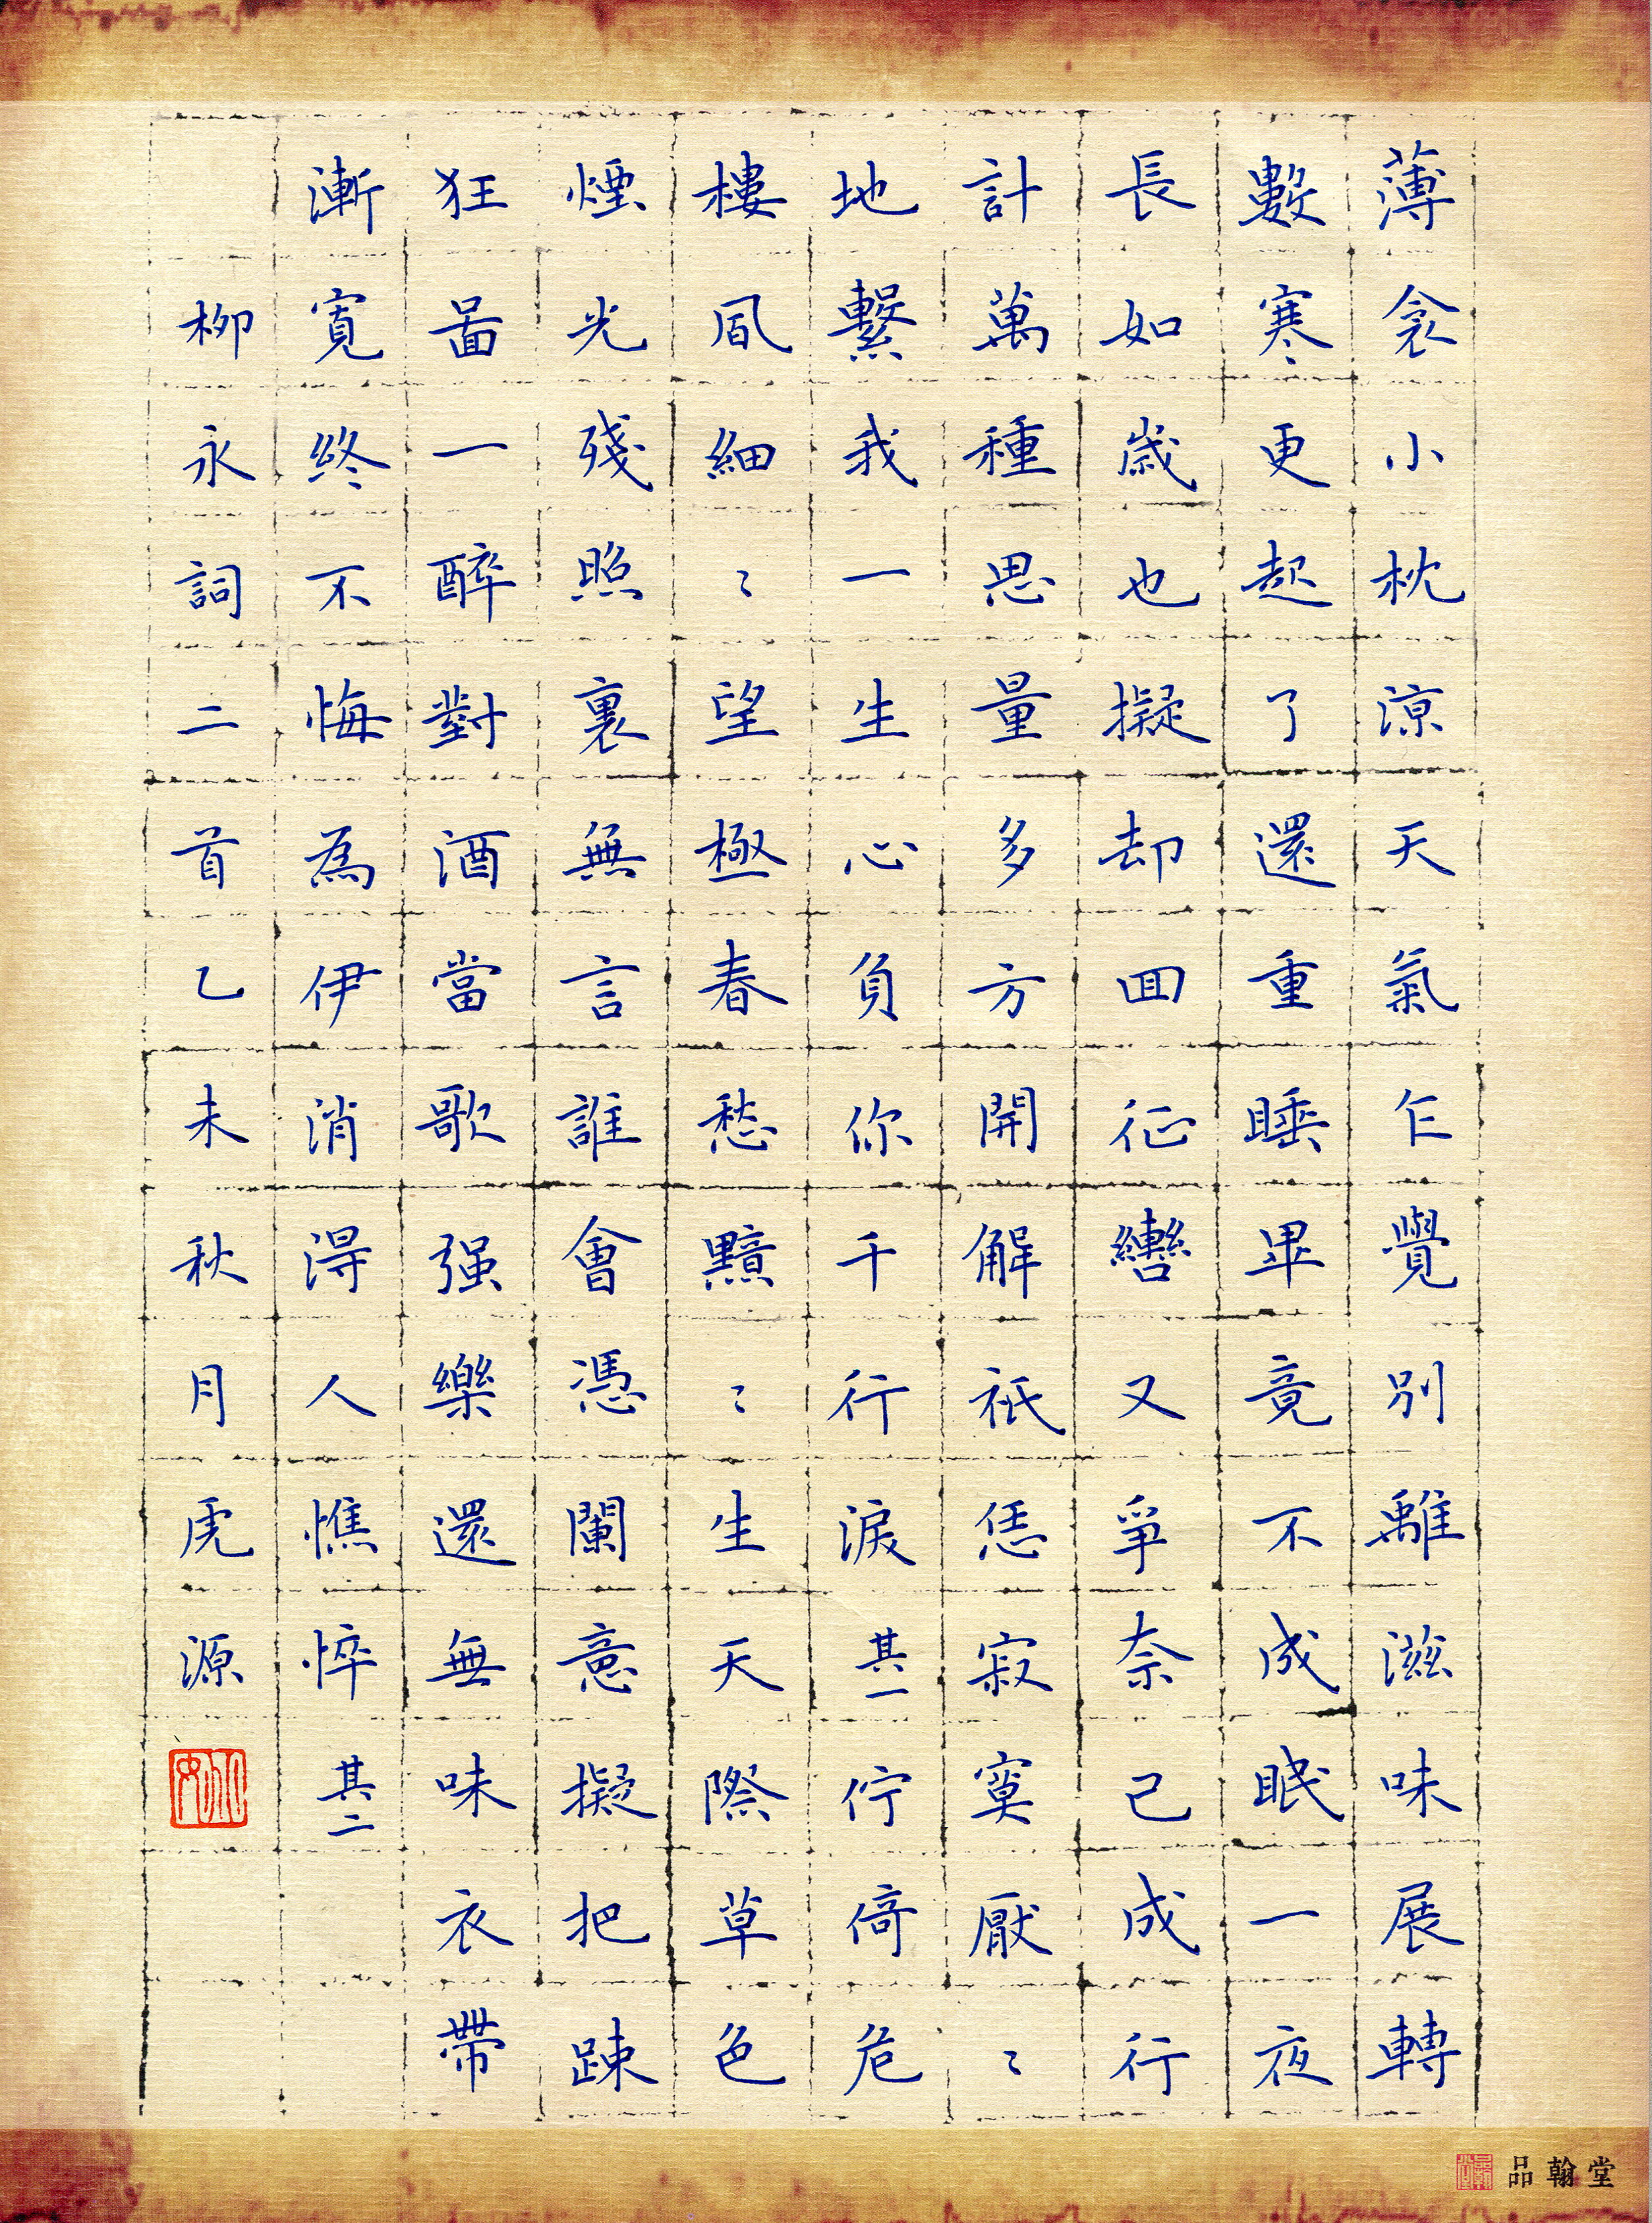 薄衾小枕涼天氣乍覺別離滋味展轉
數寒更起了還重睡畢竟不成眠一夜
長如歲也擬却回征轡又爭奈已成行
計萬種思量多方開解祇恁寂寞厭〻
地繫我一生心負你千行淚其一佇倚危
樓風細〻望極春愁黯〻生天際草色
煙光殘照裏無言誰會憑闌意擬把疎
狂圖一醉對酒當歌强樂還無味衣帶
漸寬終不悔為伊消得人憔悴其二
柳永詞二首乙未秋月虎源
品翰堂